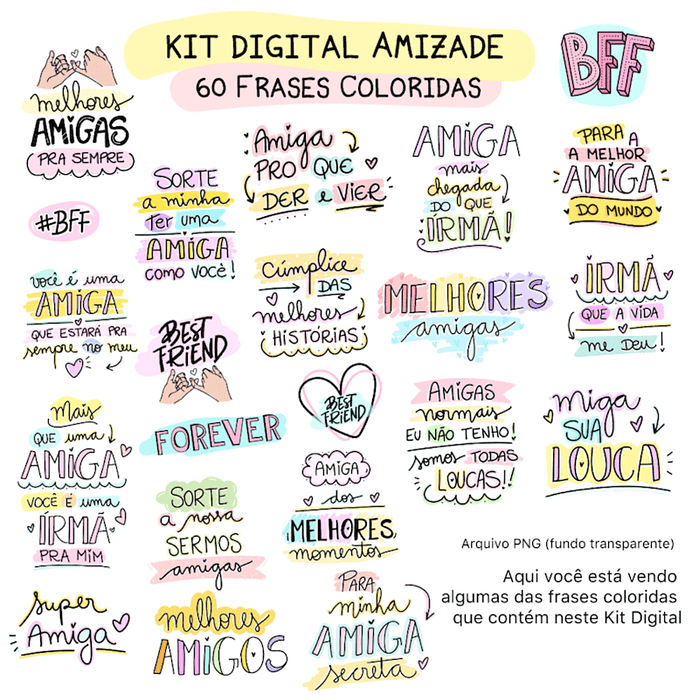 KIT DIGITAL AMIZADE
60 FRASES COLORIDAS
BFF
melhores
AMIGAS
PRA SEMPRE
SORTE
a minha
ter uma
AMIGA
como você!
Amiga
PRO QUE
DER e VIER
AMIGA
mais
chegada
DO QUE
IRMÃ!
PARA A
A MELHOR
AMIGA
DO MUNDO
#BFF
você é uma
AMIGA
QUE ESTARÁ PRA
sempre no meu
BEST
FRIEND
Cúmplice
DAS
melhores
HISTÓRIAS
MELHORES
amigas
IRMÃ
QUE A VIDA
me Deu!
Mais
QUE uma
AMIGA
VOCÊ É uma
IRMÃ
PRA MIM
FOREVER
BEST
FRIEND
AMIGAS
normais
EU NÃO TENHO!
somos TODAS
LOUCAS!!
miga
SUA
LOUCA
SORTE
a nossa
SERMOS
amigas
AMIGA
dos
MELHORES
momentos
Super
Amiga
melhores
AMIGOS
PARA
minha
AMIGA
secreta
Arquivo PNG (fundo transparente)
Aqui você está vendo
algumas das frases coloridas
que contém neste Kit Digital